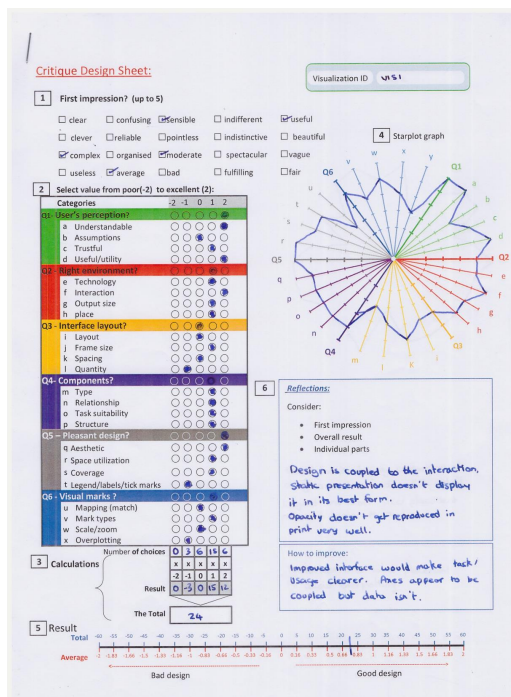 Critique Design Sheet:
Visualization ID VIS1
1 First impression? (up to 5)
clear confusing sensible indifferent useful
clever reliable pointless indistinctive beautiful
complex organised moderate spectacular vague
useless average bad fulfilling fair
2 Select value from poor(-2) to excellent (2):
Categories -2 -1 0 1 2
Q1- User's perception?
a Understandable
b Assumptions
c Trustful
d Useful/utility
Q2 - Right environment?
e Technology
f Interaction
g Output size
h place
Q3 - Interface layout?
i Layout
j Frame size
k Spacing
l Quantity
Q4- Components?
m Type
n Relationship
o Task suitability
p Structure
Q5 – Pleasant design?
q Aesthetic
r Space utilization
s Coverage
t Legend/labels/tick marks
Q6 - Visual marks ?
u Mapping (match)
v Mark types
w Scale/zoom
x Overplotting
3 Calculations
Number of choices 0 3 6 15 6
x x x x x
-2 -1 0 1 2
Result 0 -3 0 15 12
The Total 24
4 Starplot graph
w x
v y
Q6 Q1
u a
t b
s c
r d
Q5 Q2
q e
p f
o g
n h
Q4 Q3
m j k l
6 Reflections:
Consider:
• First impression
• Overall result
• Individual parts
Design is coupled to the interaction,
static presentation doesn't display
it in its best form.
Opacity doesn't get reproduced in
print very well.
How to improve:
Improved interface would make task/
usage clearer. Axes appear to be
coupled but data isn't.
5 Result
Total -60 -55 -50 -45 -40 -35 -30 -25 -20 -15 -10 -5 0 5 10 15 20 25 30 35 40 45 50 55 60
Average
Bad design Good design